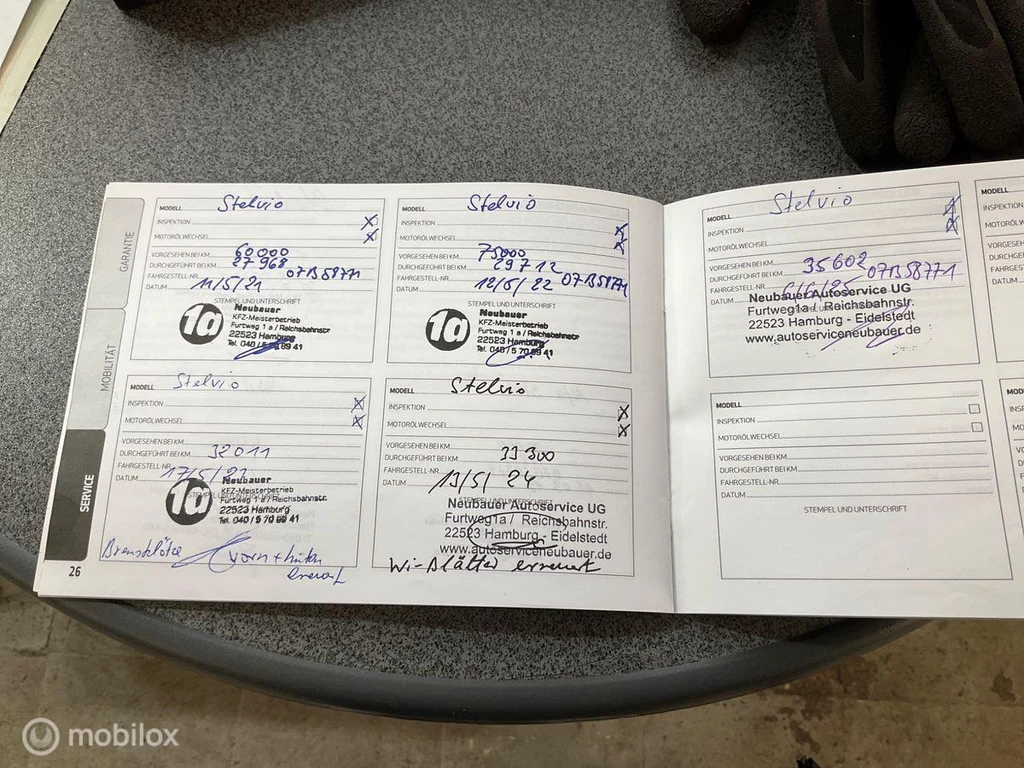 GARANTIE
MOBILITÄT
SERVICE
MODELL Stelvio
INSPEKTION X
MOTORÖLWECHSEL X
VORGESEHEN BEI KM 60 000
DURCHGEFÜHRT BEI KM 27 968
FAHRGESTELL-NR. 07B58771
DATUM 11/5/21
STEMPEL UND UNTERSCHRIFT
1a
Neubauer
KFZ-Meisterbetrieb
Furtweg 1 a / Reichsbahnstr
22523 Hamburg
Tel. 040/5 70 89 41
MODELL Stelvio
INSPEKTION X
MOTORÖLWECHSEL X
VORGESEHEN BEI KM 75000
DURCHGEFÜHRT BEI KM 29 712
FAHRGESTELL-NR. 07B58771
DATUM 12/5/22
STEMPEL UND UNTERSCHRIFT
1a
Neubauer
KFZ-Meisterbetrieb
Furtweg 1 a / Reichsbahnstr
22523 Hamburg
Tel. 040/5 70 89 41
MODELL Stelvio
INSPEKTION X
MOTORÖLWECHSEL X
VORGESEHEN BEI KM
DURCHGEFÜHRT BEI KM 32011
FAHRGESTELL-NR.
DATUM 17/5/23
STEMPEL UND UNTERSCHRIFT
1a
Neubauer
KFZ-Meisterbetrieb
Furtweg 1 a / Reichsbahnstr
22523 Hamburg
Tel. 040/5 70 89 41
Bremsklötze vorn + hinten
erneuert
26
MODELL Stelvio
INSPEKTION X
MOTORÖLWECHSEL X
VORGESEHEN BEI KM
DURCHGEFÜHRT BEI KM 33 300
FAHRGESTELL-NR.
DATUM 13/5/24
STEMPEL UND UNTERSCHRIFT
Neubauer Autoservice UG
Furtweg1a / Reichsbahnstr.
22523 Hamburg - Eidelstedt
www.autoserviceneubauer.de
Wi-Blätter erneuert
MODELL Stelvio
INSPEKTION X
MOTORÖLWECHSEL X
VORGESEHEN BEI KM
DURCHGEFÜHRT BEI KM 35602
FAHRGESTELL-NR. 07B58771
DATUM
Neubauer Autoservice UG
Furtweg1a / Reichsbahnstr.
22523 Hamburg - Eidelstedt
www.autoserviceneubauer.de
MODELL
INSPEKTION
MOTORÖLWECHSEL
VORGESEHEN BEI KM
DURCHGEFÜHRT BEI KM
FAHRGESTELL-NR.
DATUM
STEMPEL UND UNTERSCHRIFT
MODELL
INSPEKTION
mobilox